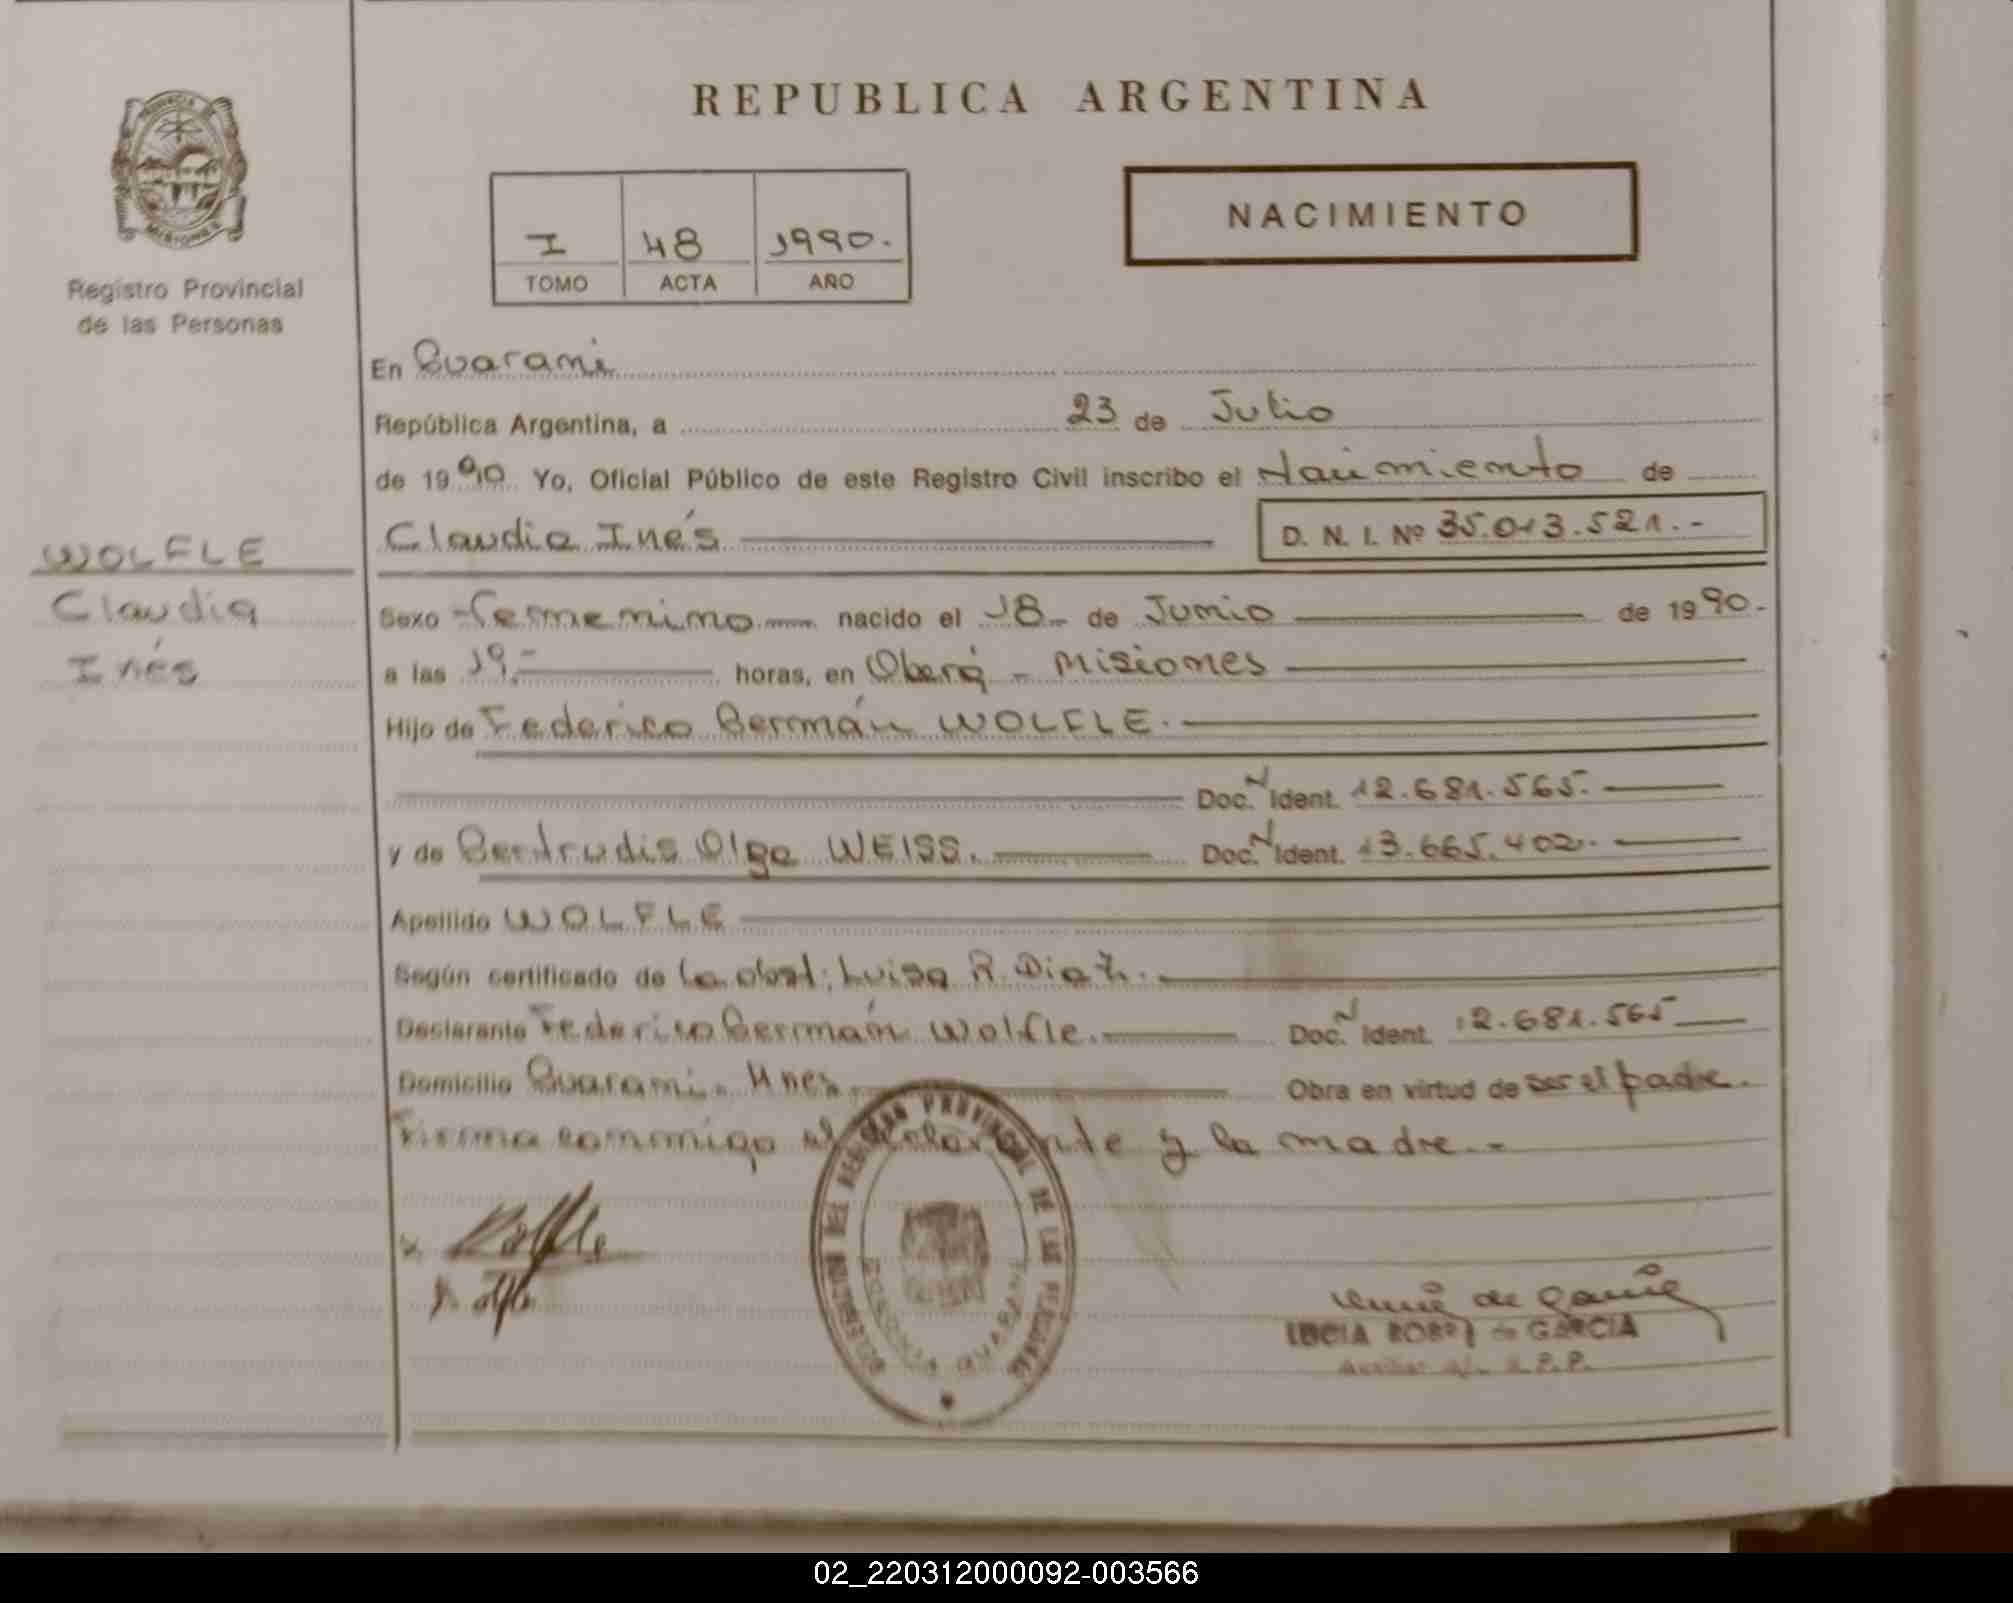 REPUBLICA ARGENTINA
NACIMIENTO
I 48 1990.
TOMO ACTA AÑO
MISIONES
Registro Provincial
de las Personas
WOLFLE
Claudia
Inés
En Guaraní
República Argentina, a 23 de Julio
de 1990 Yo, Oficial Público de este Registro Civil inscribo el Nacimiento de
Claudia Inés D. N. I. Nº 35.013.521.-
Sexo Femenino nacido el 18 de Junio de 1990.
a las 19.- horas, en Oberá - Misiones
Hijo de Federico Germán WOLFLE.
Doc. N Ident. 12.681.565.
y de Gertrudis Olga WEISS. Doc. N Ident. 13.665.402.
Apellido WOLFLE
Según certificado de la obst: Luisa R. Diaz.
Declarante Federico Germán Wolfle. Doc. N Ident. 12.681.565
Domicilio Guaraní. Mnes. Obra en virtud de ser el padre.
Firma conmigo el declarante y la madre.-
PROVINCIAL DE LAS PERSONAS
LUCIA de GARCIA
02_220312000092-003566